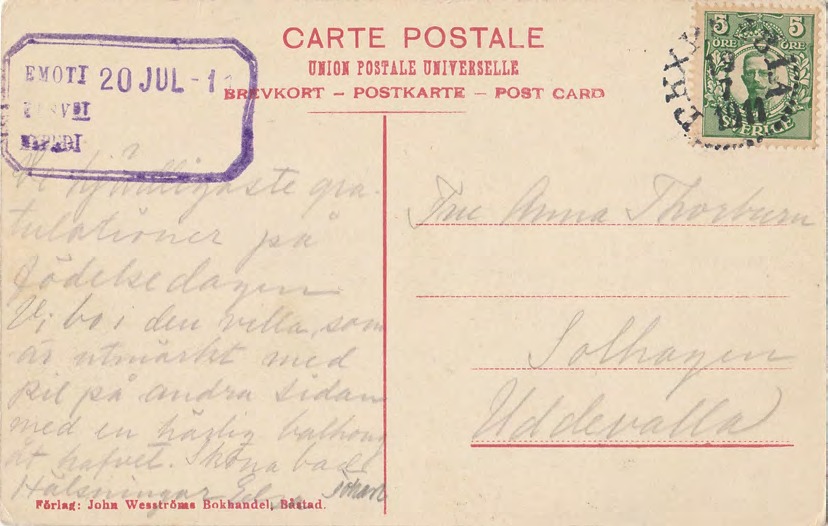 CARTE POSTALE
UNION POSTALE UNIVERSELLE
BREVKORT – POSTKARTE – POST CARD
EMOTT 20 JUL -11
5 5
ÖRE ÖRE
SVERIGE
1911
hjärtligaste gra-
tulationer på
födelsedagen
Vi bo i den villa, som
är utmärkt med
pil på andra sidan
med en härlig balkong
åt hafvet. Sköna bad
Hälsningar Elsa
Johan
Fru Anna Thorburn
Solhagen
Uddevalla
Förlag: John Wesströms Bokhandel, Båstad.